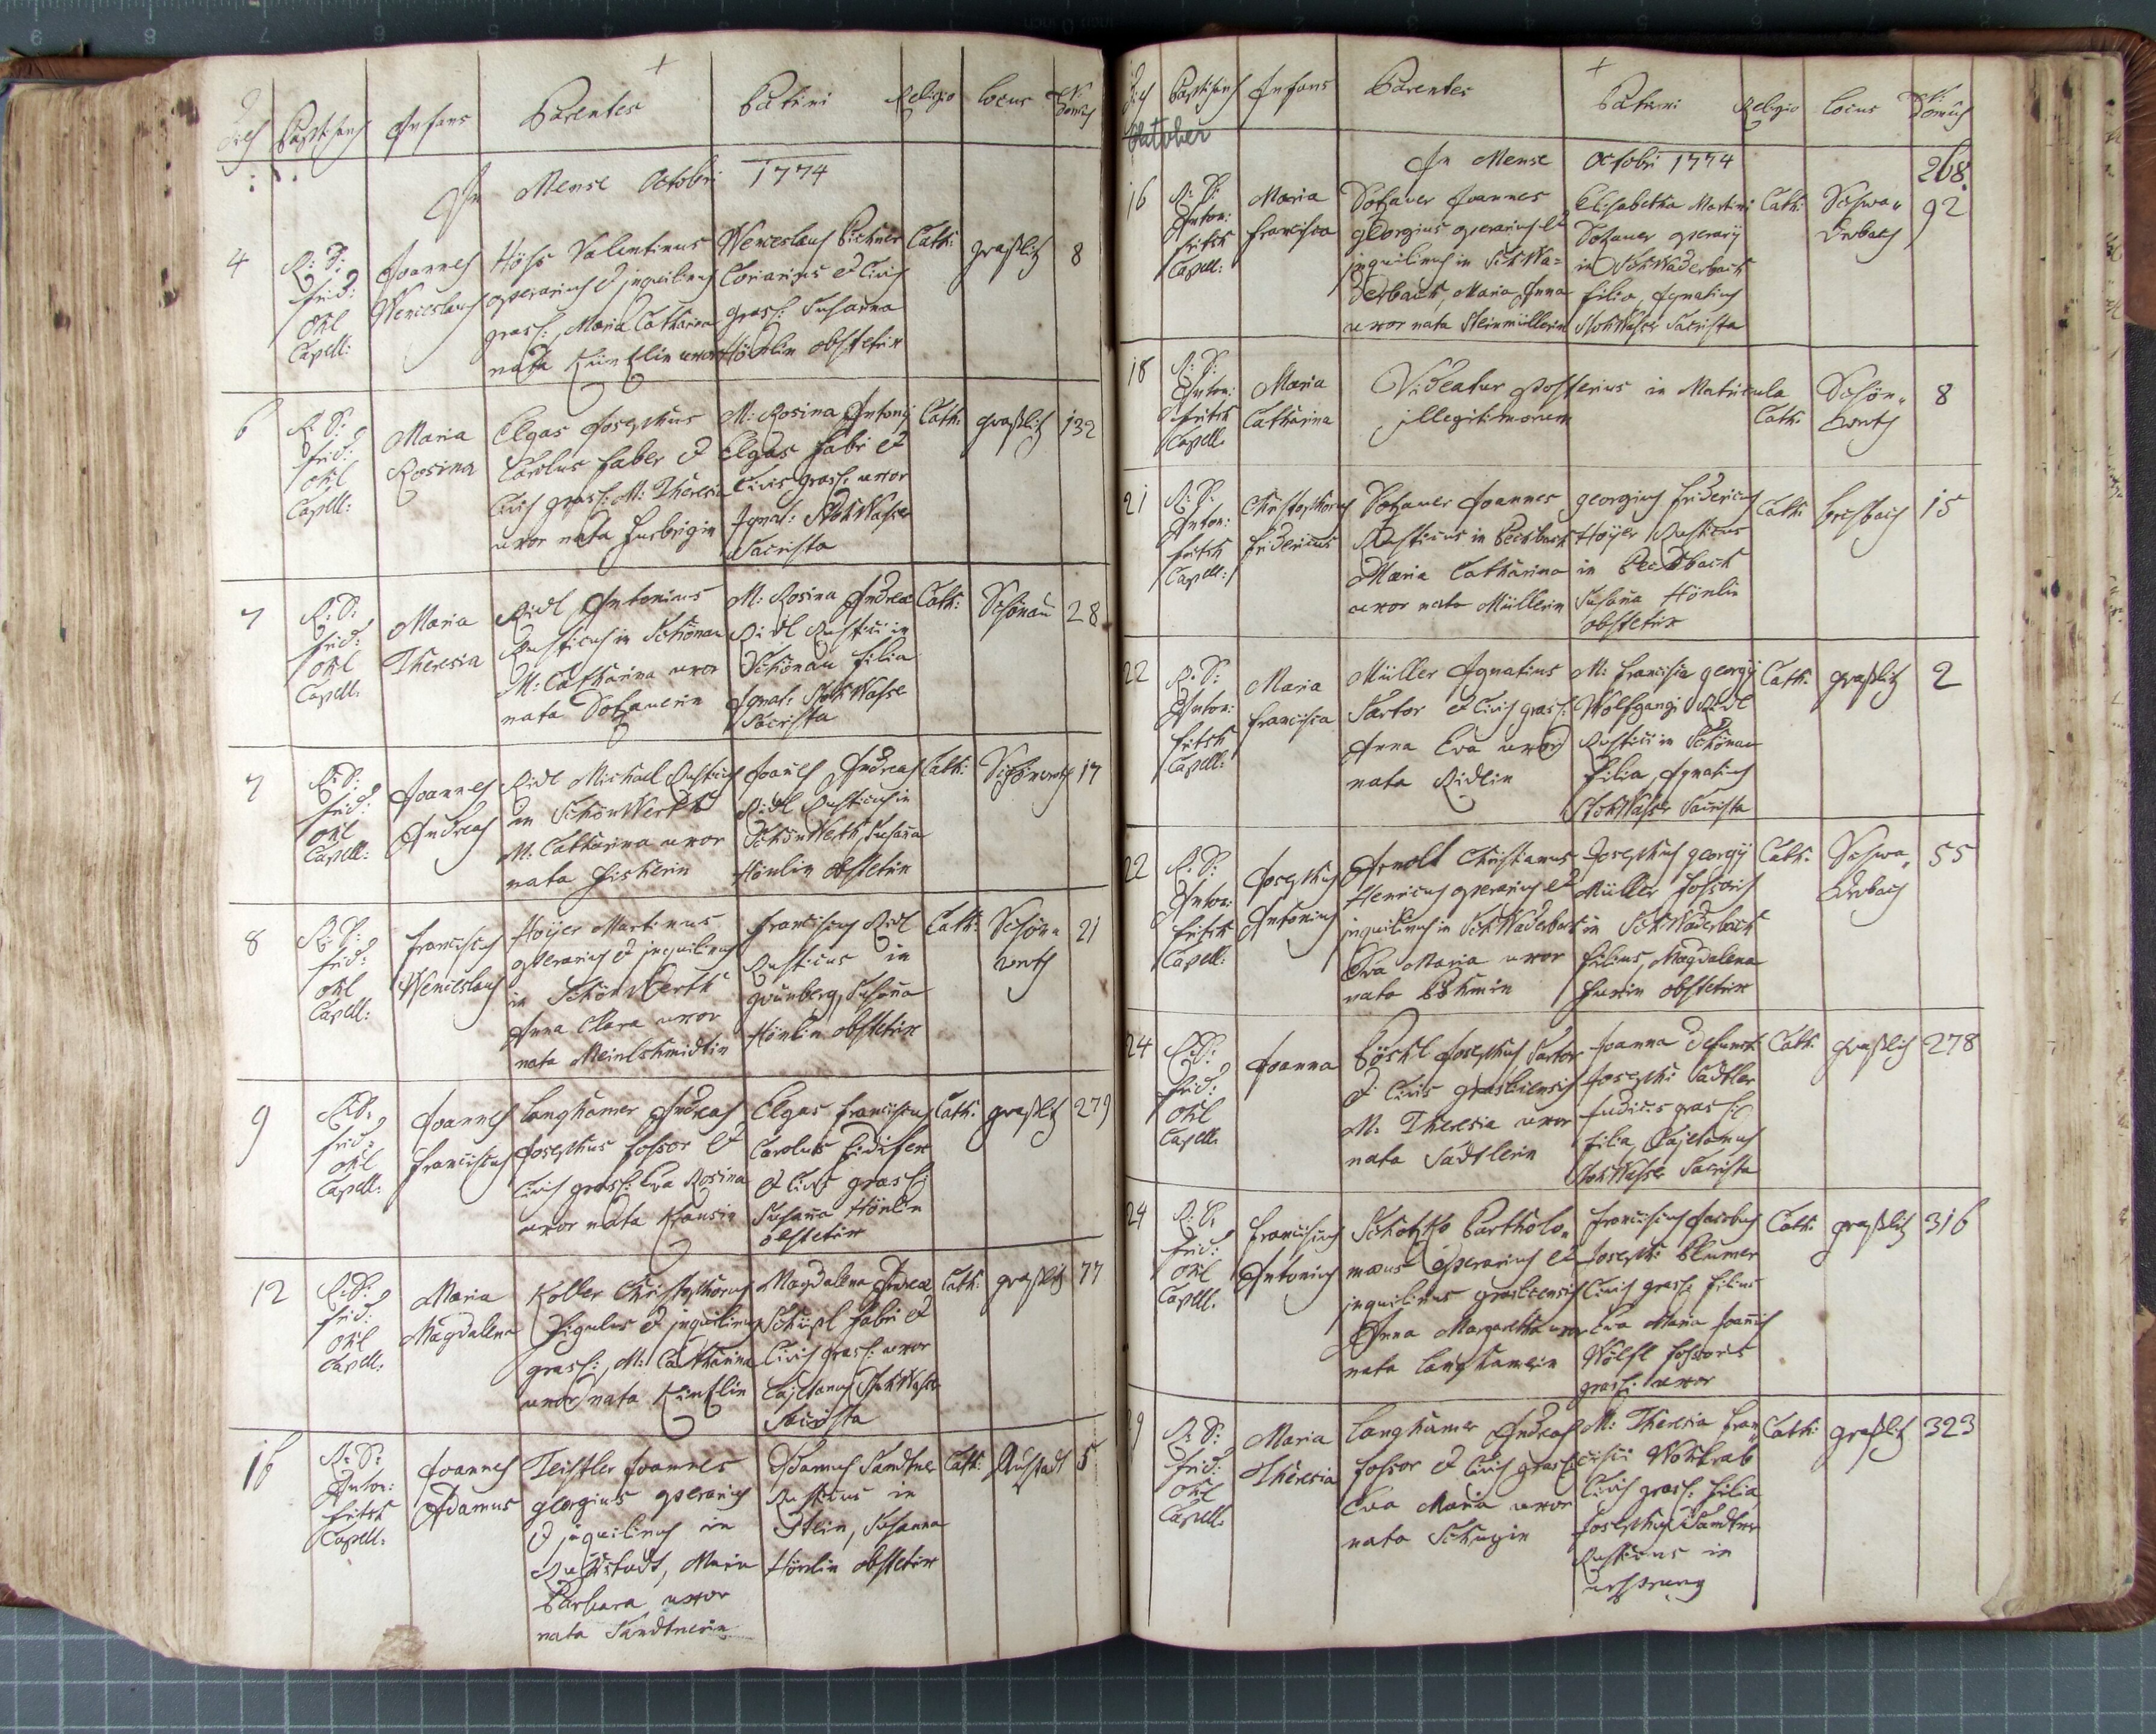 Dies Baptisans Infans Parentes Patrini Religio Locus N: Domus
In Mense Octobri 1774
4
R: D:
frid:
Ohl
Capell:
Joannes
Wenceslaus
Höhs Valentinus
operarius et inquilinus
grasl: Maria Catharina
nata
uxor
Wenceslaus Pichner
Coriarius et Civis
grasl: Susanna
Hönlin obstetrix
Cath:
graslitz
8
6
R: D:
frid:
Ohl
Capell:
Maria
Rosina
Elgas Josephus
Carolus faber et
Civis grasl: M: Theresia
uxor nata
M: Rosina Antonij
Elgas fabri et
Civis grasl: uxor
Ignat: StohWasser
Sacrista
Cath:
graslitz
132
7
R: D:
frid:
Ohl
Capell:
Maria
Theresia
Ridl Antonius
Rusticus in Schönau
M: Catharina uxor
nata Dotzauerin
M: Rosina Andreæ
Ridl Rustici in
Schönau filia
Ignat: StohWasse
Sacrista
Cath:
Schönau
28
7
R: D:
frid:
Ohl
Capell:
Joannes
Andreas
Ridl Michael Rusticus
in SchönWerth
M: Catharina uxor
nata Fischerin
Joañes Andreas
Ridl Rusticus in
SchönWerth Susaña
Hönlin obstetrix
Cath:
Schönwerth
17
8
R: D:
frid:
Ohl
Capell:
Franciscus
Wenceslaus
Hoÿer Martinus
operarius et inquilinus
in SchönWerth
Anna Clara uxor
nata Meinlschmidtin
Franciscus Ridl
Rusticus in
grünberg, Susaña
Hönlin obstetrix
Cath:
Schön"
werth
21
9
R: D:
frid:
Ohl
Capell:
Joannes
Franciscus
Langhamer Andreas
Josephus fossor et
Civis grasl: Eva Rosina
uxor nata
Elgas Franciscus
Carolus
et Civis grasl:
Susaña Hönlin
obstetrix
Cath:
graslitz
279
12
R: D:
frid:
Ohl
Capell:
Maria
Magdalena
Koller Christophorus
figulus et inquilinus
grasl:, M: Catharina
uxor nata
Magdalena Andreæ
fabri et
Civis grasl: uxor
Cajetanus StohWasser
Sacrista
Cath:
graslitz
77
16
R: D:
Anton:
fritsch
Capell:
Joannes
Adamus
Teistler Joannes
georgius operarius
et inquilinus in
Ruhstadt, Maria
Barbara uxor
nata Sandtnerin
Adamus Sandtner
Rusticus in
Stein, Susanna
Hönlin obstetrix
Cath:
Ruhstadt
5
Dies Baptisans Infans Parentes Patrini Religio Locus N: Domus
Oktober
In Mense Octobri 1774
268.
16
R: D:
Anton:
fritsch
Capell:
Maria
Francisca
Dotzauer Joannes
georgius operarius et
inquilinus in SchWa=
derbach, Maria Anna
uxor nata Steinmüllerin
Elisabetha Martini
Dotzauer operarij
in SchWaderbach
filia, Ignatius
StohWasser Sacrista
Cath:
Schwa"
derbach
92
18
R: D:
Anton:
fritsch
Capell:
Maria
Catharina
Videatur posterius in Matricula
illegitimorum
Cath:
Schön"
werth
8
21
R: D:
Anton:
fritsch
Capell:
Christophorus
fridericus
Dotzauer Joannes
Rusticus in Pechbach
Maria Catharina
uxor nata Müllerin
georgius fridericus
Hoÿer Rusticus
in Pechbach
Susaña Hönlin
obstetrix
Cath:
Pechbach
15
22
R: D:
Anton:
fritsch
Capell:
Maria
Francisca
Müller Ignatius
Sartor et Civis grasl:
Anna Eva uxor
nata Ridlin
M: Francisca georgij
Wolfgangi Ridl
Rustici in Schönau
filia, Ignatius
StohWasser Sacrista
Cath:
graslitz
2
22
R: D:
Anton:
fritsch
Capell:
Josephus
Antonius
Arnolt Christianus
Henricus operarius et
inquilinus in SchWaderbach
Eva Maria uxor
nata Böhmin
Josephus georgij
Müller fossoris
in SchWaderbach
filius, Magdalena
obstetrix
Cath:
Schwa"
derbach
55
24
R: D:
frid:
Ohl
Capell:
Joanna
Pöschl Josephus Sartor
et Civis graslicensis
M: Theresia uxor
nata Sadtlerin
Joanna defuncti
Josephi Sadtler
Judicis grasl:
filia, Cajetanus
StohWasser Sacrista
Cath:
graslitz
278
24
R: D:
frid:
Ohl
Capell:
Franciscus
Antonius
Bartholo"
mæus operarius et
inquilinus graslicensis
Anna Margaretha uxor
nata Langhamerin
Franciscus Jacobus
Josephi Blumer
Civis grasl: filius
Eva Maria Joañis
Wölfl fossoris
grasl: uxor
Cath:
graslitz
316
29
R: D:
frid:
Ohl
Capell:
Maria
Theresia
Langhamer Andreas
fossor et Civis grasl:
Eva Maria uxor
nata
M: Theresia Fran"
cisci
Civis grasl: filia
Josephus Sandtner
Rusticus in
ursprung
Cath:
graslitz
323